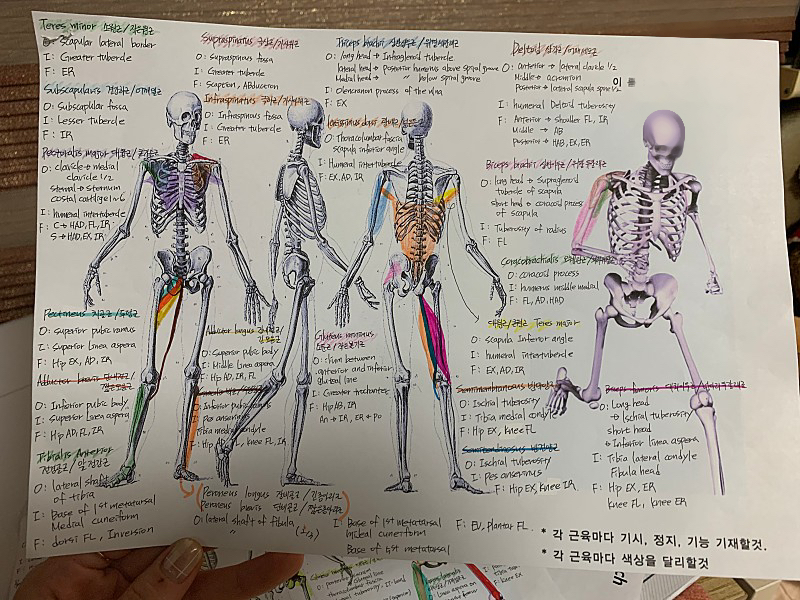 Teres minor 소원근/작은원근
O: scapular lateral border
I: Greater tubercle
F: ER
Subscapularis 견갑하근/어깨밑근
O: Subscapular fossa
I: Lesser tubercle
F: IR
Pectoralis major 대흉근/
O: clavicle → medial
clavicle 1/2
sternal → sternum
costal cartilge 1~6
I: humeral intertubercle
F: C → HAD, FL, IR
S → HAD, EX, IR
Supraspinatus 극상근/가시위근
O: supraspinous fossa
I: Greater tubercle
F: Scapeion, Abduction
Infraspinatus 극하근/가시아래근
O: Infraspinous fossa
I: Greater tubercle
F: ER
Triceps brachii 상완삼두근/위팔세갈래근
O: long head → Infraglenoid tubercle
lateral head → Posterior humerus above spiral grove
Medial head → " below spiral grove
I: Olecranon process of the ulna
F: EX
Latissimus dorsi 광배근/
O: Thoracolumbar fascia
scapula inferior angle
I: Humeral intertubercle
F: EX, AD, IR
Deltoid 삼각근/어깨세모근
O: anterior → lateral clavicle 1/2
Middle → acromion
Posterior → lateral scapula spine 1/2
이
I: humeral Deltoid tuberosity
F: Anterior → shoulder FL, IR
Middle → AB
Posterior → HAB, EX, ER
Biceps brachii 상완이두근/위팔두갈래근
O: long head → Supraglenoid
tubercle of scapula
short head → coracoid process
of scapula
I: Tuberosity of radius
F: FL
Coracobrachialis 오훼완근/
O: coracoid process
I: humerus middle medial
F: FL, AD, HAD
대원근/큰원근 Teres major
O: scapula Inferior angle
I: humeral intertubercle
F: EX, AD, IR
Pectineus 치골근/두덩근
O: superior pubic ramus
I: Superior linea aspera
F: Hip EX, AD, IR
Adductor brevis 단내전근/
짧은모음근
O: Inferior pubic body
I: Superior linea aspera
F: Hip AD, FL, IR
Tibialis Anterior
전경골근/앞정강근
O: lateral shaft
of tibia
I: Base of 1st metatarsal
Medial cuneiform
F: dorsi FL, Inversion
Adductor longus 장내전근/
긴모음근
O: Superior pubic body
I: Middle linea aspera
F: Hip AD, IR, FL
O: Inferior pubic ramus
I: Pes anserinus
Tibia medial condyle
F: Hip AD, FL, knee FL, IR
Gluteus minimus
소둔근/작은볼기근
O: ilium between
anterior and inferior
gluteal line
I: Greater trochanter
F: Hip AB, IR
An → IR, ER → Po
Semimembranosus 반막양근
O: Ischial tuberosity
I: Tibia medial condyle
F: Hip EX, knee FL
Semitendinosus 반건양근
O: Ischial tuberosity
I: Pes anserinus
F: Hip EX, knee IR
Biceps femoris 대퇴이두근/넙다리두갈래근
O: Long head
→ Ischial tuberosity
short head
→ Inferior linea aspera
I: Tibia lateral condyle
Fibula head
F: Hip EX, ER
knee FL, knee ER
Peroneus longus 장비골근/긴종아리근
Peroneus brevis 단비골근/짧은종아리근
O: lateral shaft of fibula
I: Base of 1st metatarsal
Medial cuneiform
Base of 5t metatarsal
F: EV, plantar FL
* 각 근육마다 기시, 정지, 기능 기재할것.
* 각 근육마다 색상을 달리할것